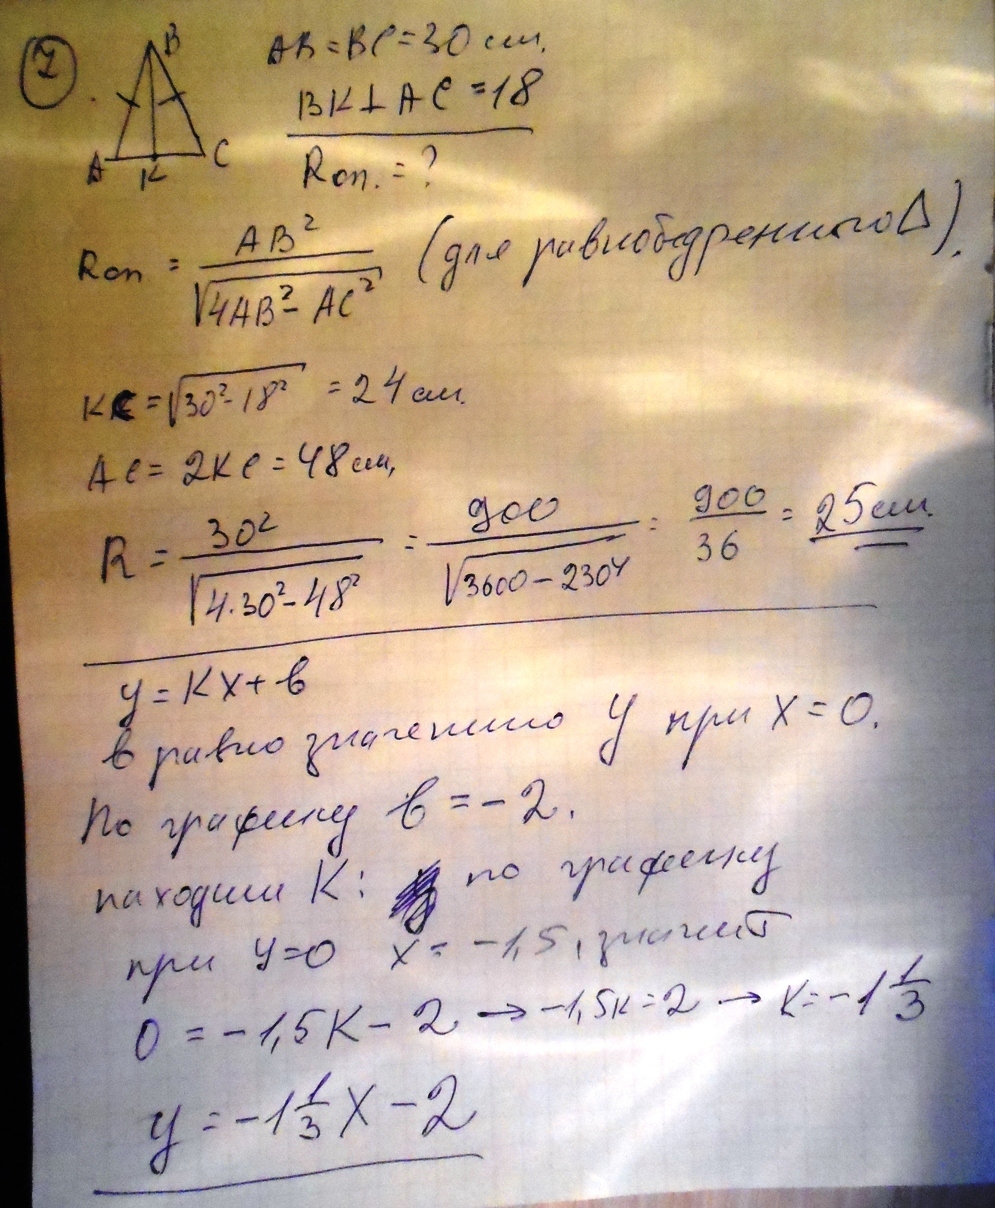 7.
B
A K C
AB = BC = 30 см.
BK ⊥ AC = 18
Rоп. = ?
Rоп = AB² / √(4AB² - AC²) (для равнобедренного Δ).
KC = √(30² - 18²) = 24 см.
AC = 2KC = 48 см,
R = 30² / √(4·30² - 48²) = 900 / √(3600 - 2304) = 900 / 36 = 25 см.
y = Kx + b
b равно значению y при x = 0.
По графику b = -2.
находим K: по графику
при y = 0 x = -1,5, значит
0 = -1,5K - 2 → -1,5K = 2 → K = -1 1/3
y = -1 1/3 x - 2